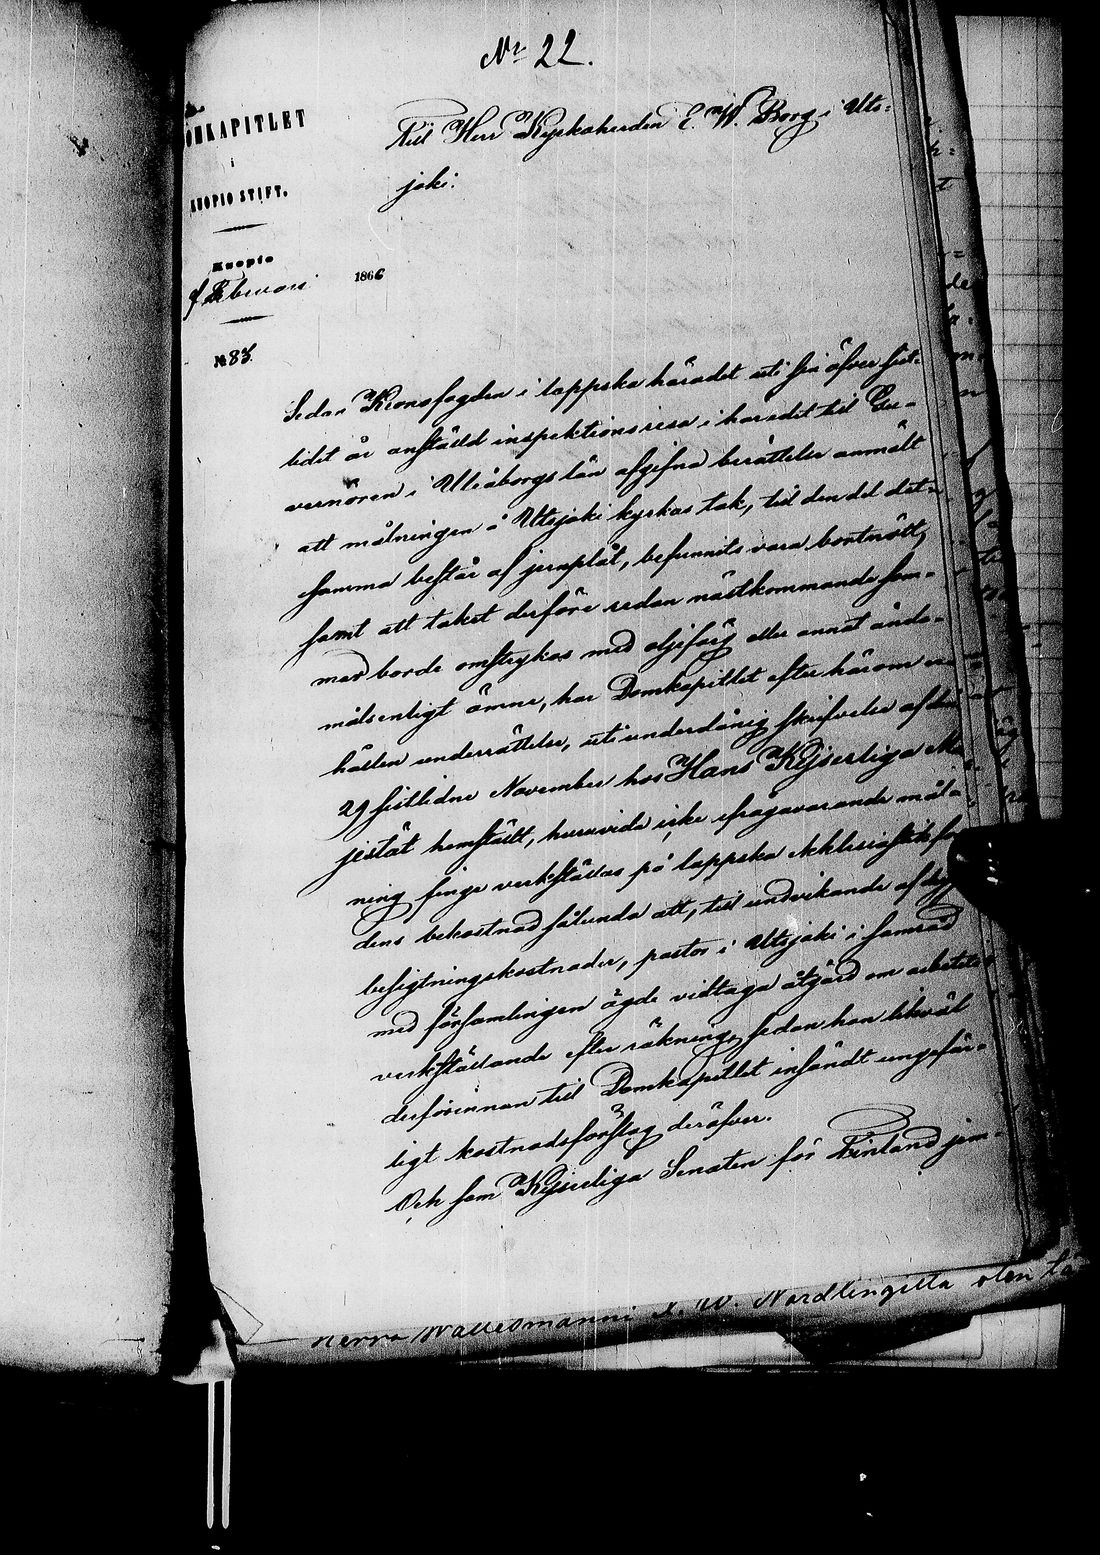 No 22.
DOMKAPITLET
i
KUOPIO STIFT.
Kuopio
Februari 1866
№ 83.
Till Herr Kyrkoherden E. W. Borg i Uts-
joki.
Sedan Kronofogden i lappska häradet uti sin öfver sist-
lidet år anställd inspektionsresa i häradet till Gu-
vernören i Uleåborgs län afgifna berättelse anmält
att målningen å Utsjoki kyrkas tak, till den del det-
samma består af jernplåt, befunnits vara bortnött,
samt att taket derföre redan nästkommande som-
mar borde omstrykas med oljefärg eller annat ända-
målsenligt ämne, har Domkapitlet efter härom er-
hållen underrättelse, uti underdånig skrifvelse af den
29 sistlidne November hos Hans Kejserliga Ma-
jestät hemställt, huruvida icke ifrågavarande mål-
ning finge verkställas på lappska ecklesiastikfon-
dens bekostnad sålunda att, till undvikande af
besigtningskostnader, pastor i Utsjoki i samråd
med församlingen ägde vidtaga åtgärd om arbetets
verkställande efter räkning, sedan han likväl
derförinnan till Domkapitlet insändt ungefär-
ligt kostnadsförslag deröfver.
Och som Kejserliga Senaten för Finland jem-
Herra Wallesmanni J. W. Nordlingiltä olen